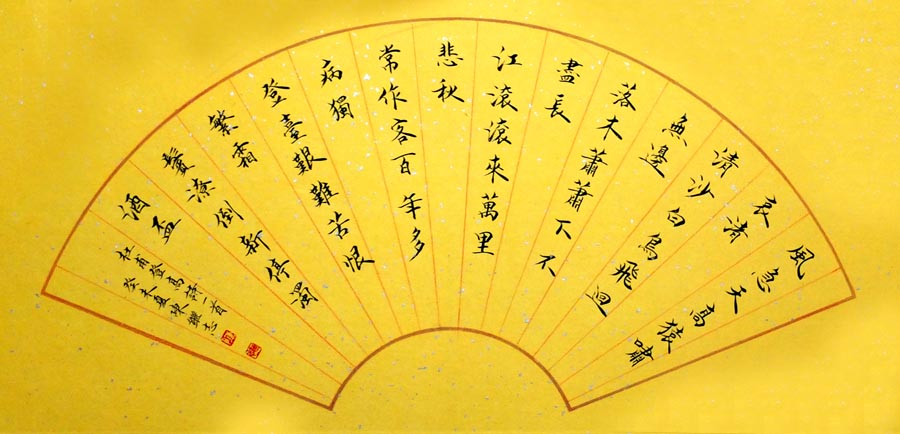 風急天高猿嘯
哀渚
清沙白鳥飛迴
無邊
落木蕭蕭下不
盡長
江滾滾來萬里
悲秋
常作客百年多
病獨
登臺艱難苦恨
繁霜
鬢潦倒新停濁
酒盃
杜甫登高詩一首
癸未夏陳繼志